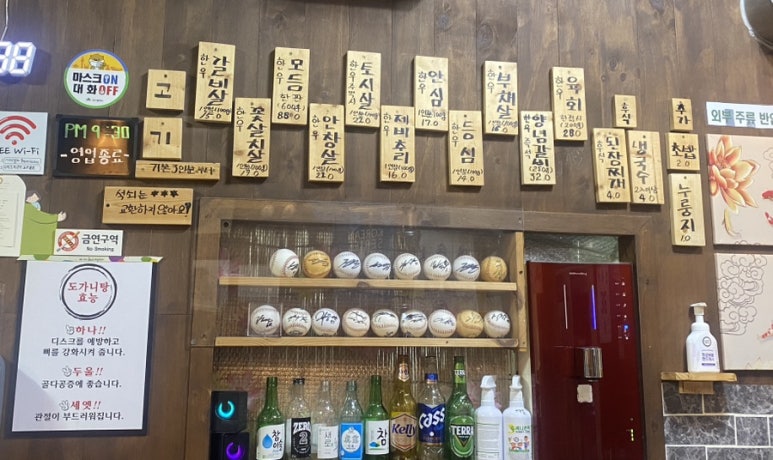 88
마스크ON
대화OFF
FREE Wi-Fi
PM 9:30
-영업종료-
고
기
기본 3인분부터
석쇠는 ***
교환하지 않아요?
금연구역
No-Smoking
한우 갈비살
한우 꽃살치살
한우 모듬
한판
(600g)
88.0
한우 안창살
한우 토시살
22.0
한우 제비추리
16.0
한우 안심
17.0
한우 등심
한우 부채살
한우 양념갈비
32.0
한우 육회
28.0
후식
된장찌개
4.0
냉국수
4.0
추가
찰밥
2.0
누룽지
1.0
외부 주류 반
도가니탕
효능
하나!!
디스크를 예방하고
뼈를 강화시켜 줍니다.
두울!!
골다공증에 좋습니다.
세엣!!
관절이 부드러워집니다.
참이슬
ZERO
새로
참
Kelly
Cass
TERRA